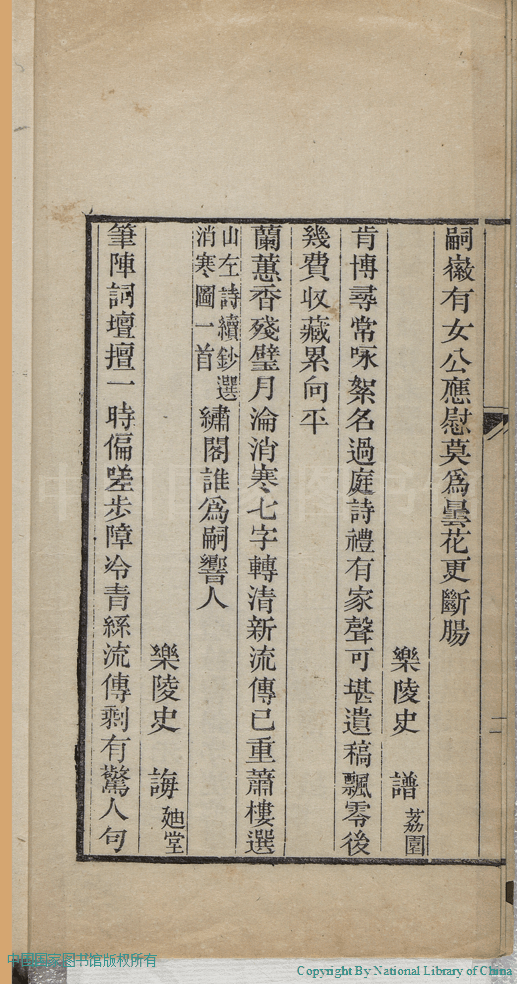 嗣徽有女公應慰莫爲曇花更斷腸
樂陵史　譜荔園
肯博尋常咏絮名過庭詩禮有家聲可堪遺稿飄零後
幾費收藏累向平
蘭蕙香殘璧月淪消寒七字轉清新流傳已重蕭樓選
山左詩續鈔選
消寒圖一首
繡閣誰爲嗣響人
樂陵史　誨廸堂
筆陣詞壇擅一時偏嗟步障冷青絲流傳剩有驚人句
二
中国国家图书馆版权所有
Copyright By National Library of China